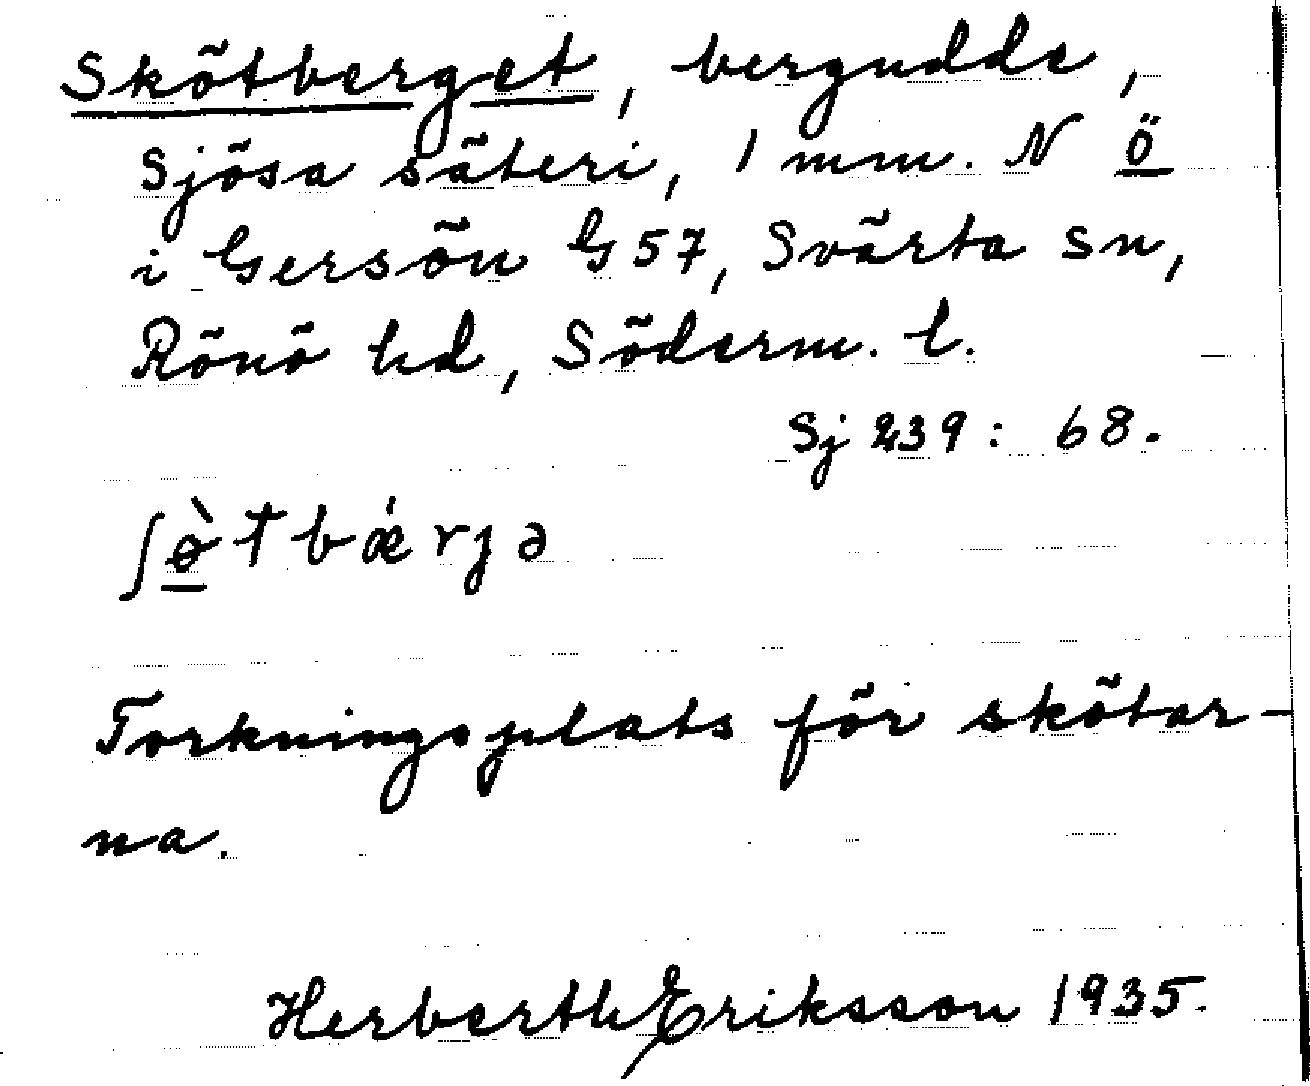 Skötberget, bergudde,
Sjösa säteri, 1 mm. N ö
i Gersön G 57, Svärta sn,
Rönö hd, Söderm. l.
Sj 239: 68.
ʃø̀tbǽrjə
Torkningsplats för skötar-
na.
Herberth Eriksson 1935.